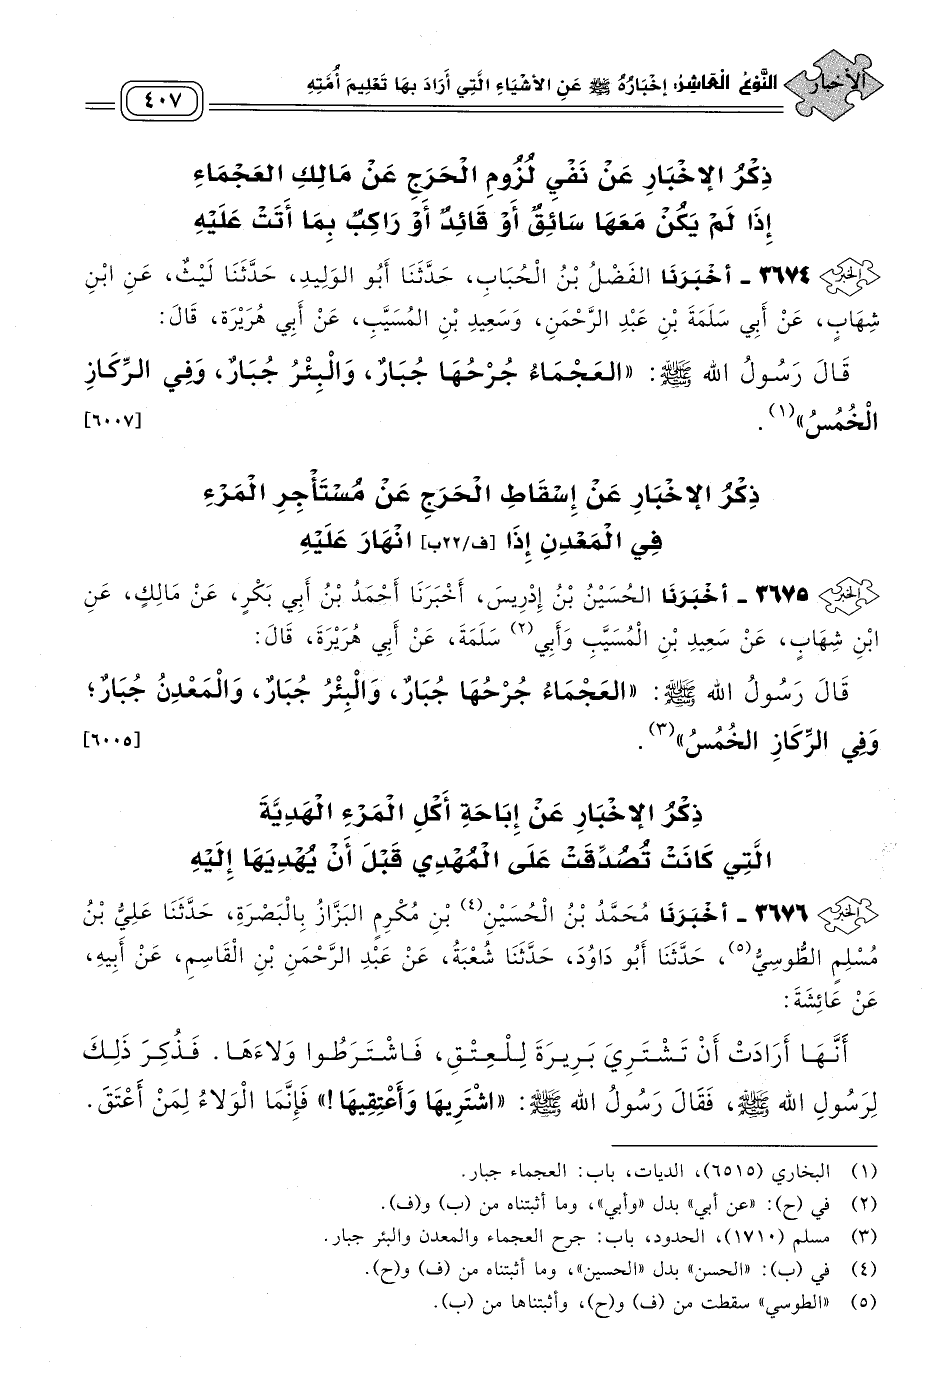 الأخبار
النَّوْعُ الْعَاشِرُ: إخْبَارُهُ ﷺ عَنِ الأشْيَاءِ الَّتِي أرَادَ بِهَا تَعْلِيمَ أُمَّتِهِ
٤٠٧
ذِكْرُ الإخْبَارِ عَنْ نَفْيِ لُزُومِ الْحَرَجِ عَنْ مَالِكِ العَجْمَاءِ
إذَا لَمْ يَكُنْ مَعَهَا سَائِقٌ أوْ قَائِدٌ أوْ رَاكِبٌ بِمَا أتَتْ عَلَيْهِ
الخبر ٣٦٧٤ ـ أخْبَرَنَا الفَضْلُ بْنُ الْحُبَابِ، حَدَّثَنَا أبُو الوَلِيدِ، حَدَّثَنَا لَيْثٌ، عَنِ ابْنِ
شِهَابٍ، عَنْ أبِي سَلَمَةَ بْنِ عَبْدِ الرَّحْمَنِ، وَسَعِيدِ بْنِ المُسَيَّبِ، عَنْ أبِي هُرَيْرَةَ، قَالَ:
قَالَ رَسُولُ الله ﷺ: «العَجْمَاءُ جُرْحُهَا جُبَارٌ، وَالْبِئْرُ جُبَارٌ، وَفِي الرِّكَازِ
الْخُمُسُ»(١). [٦٠٠٧]
ذِكْرُ الإخْبَارِ عَنْ إسْقَاطِ الْحَرَجِ عَنْ مُسْتَأْجِرِ الْمَرْءِ
فِي الْمَعْدِنِ إذَا [ف/٢٢ب] انْهَارَ عَلَيْهِ
الخبر ٣٦٧٥ ـ أخْبَرَنَا الحُسَيْنُ بْنُ إدْرِيسَ، أخْبَرَنَا أحْمَدُ بْنُ أبِي بَكْرٍ، عَنْ مَالِكٍ، عَنِ
ابْنِ شِهَابٍ، عَنْ سَعِيدِ بْنِ الْمُسَيَّبِ وَأبِي(٢) سَلَمَةَ، عَنْ أبِي هُرَيْرَةَ، قَالَ:
قَالَ رَسُولُ الله ﷺ: «العَجْمَاءُ جُرْحُهَا جُبَارٌ، وَالْبِئْرُ جُبَارٌ، وَالْمَعْدِنُ جُبَارٌ؛
وَفِي الرِّكَازِ الخُمُسُ»(٣). [٦٠٠٥]
ذِكْرُ الإخْبَارِ عَنْ إبَاحَةِ أكْلِ المَرْءِ الْهَدِيَّةَ
الَّتِي كَانَتْ تُصُدِّقَتْ عَلَى الْمُهْدِي قَبْلَ أنْ يُهْدِيَهَا إلَيْهِ
الخبر ٣٦٧٦ ـ أخْبَرَنَا مُحَمَّدُ بْنُ الْحُسَيْنِ(٤) بْنِ مُكْرِمٍ البَزَّازُ بِالْبَصْرَةِ، حَدَّثَنَا عَلِيُّ بْنُ
مُسْلِمٍ الطُّوسِيُّ(٥)، حَدَّثَنَا أبُو دَاوُدَ، حَدَّثَنَا شُعْبَةُ، عَنْ عَبْدِ الرَّحْمَنِ بْنِ الْقَاسِمِ، عَنْ أبِيهِ،
عَنْ عَائِشَةَ:
أنَّهَا أرَادَتْ أنْ تَشْتَرِيَ بَرِيرَةَ لِلْعِتْقِ، فَاشْتَرَطُوا وَلاءَهَا. فَذُكِرَ ذَلِكَ
لِرَسُولِ الله ﷺ، فَقَالَ رَسُولُ الله ﷺ: «اشْتَرِيهَا وَأعْتِقِيهَا!» فَإنَّمَا الْوَلاءُ لِمَنْ أعْتَقَ.
(١) البخاري (٦٥١٥)، الديات، باب: العجماء جبار.
(٢) في (ح): «عن أبي» بدل «وأبي»، وما أثبتناه من (ب) و(ف).
(٣) مسلم (١٧١٠)، الحدود، باب: جرح العجماء والمعدن والبئر جبار.
(٤) في (ب): «الحسن» بدل «الحسين»، وما أثبتناه من (ف) و(ح).
(٥) «الطوسي» سقطت من (ف) و(ح)، وأثبتناها من (ب).